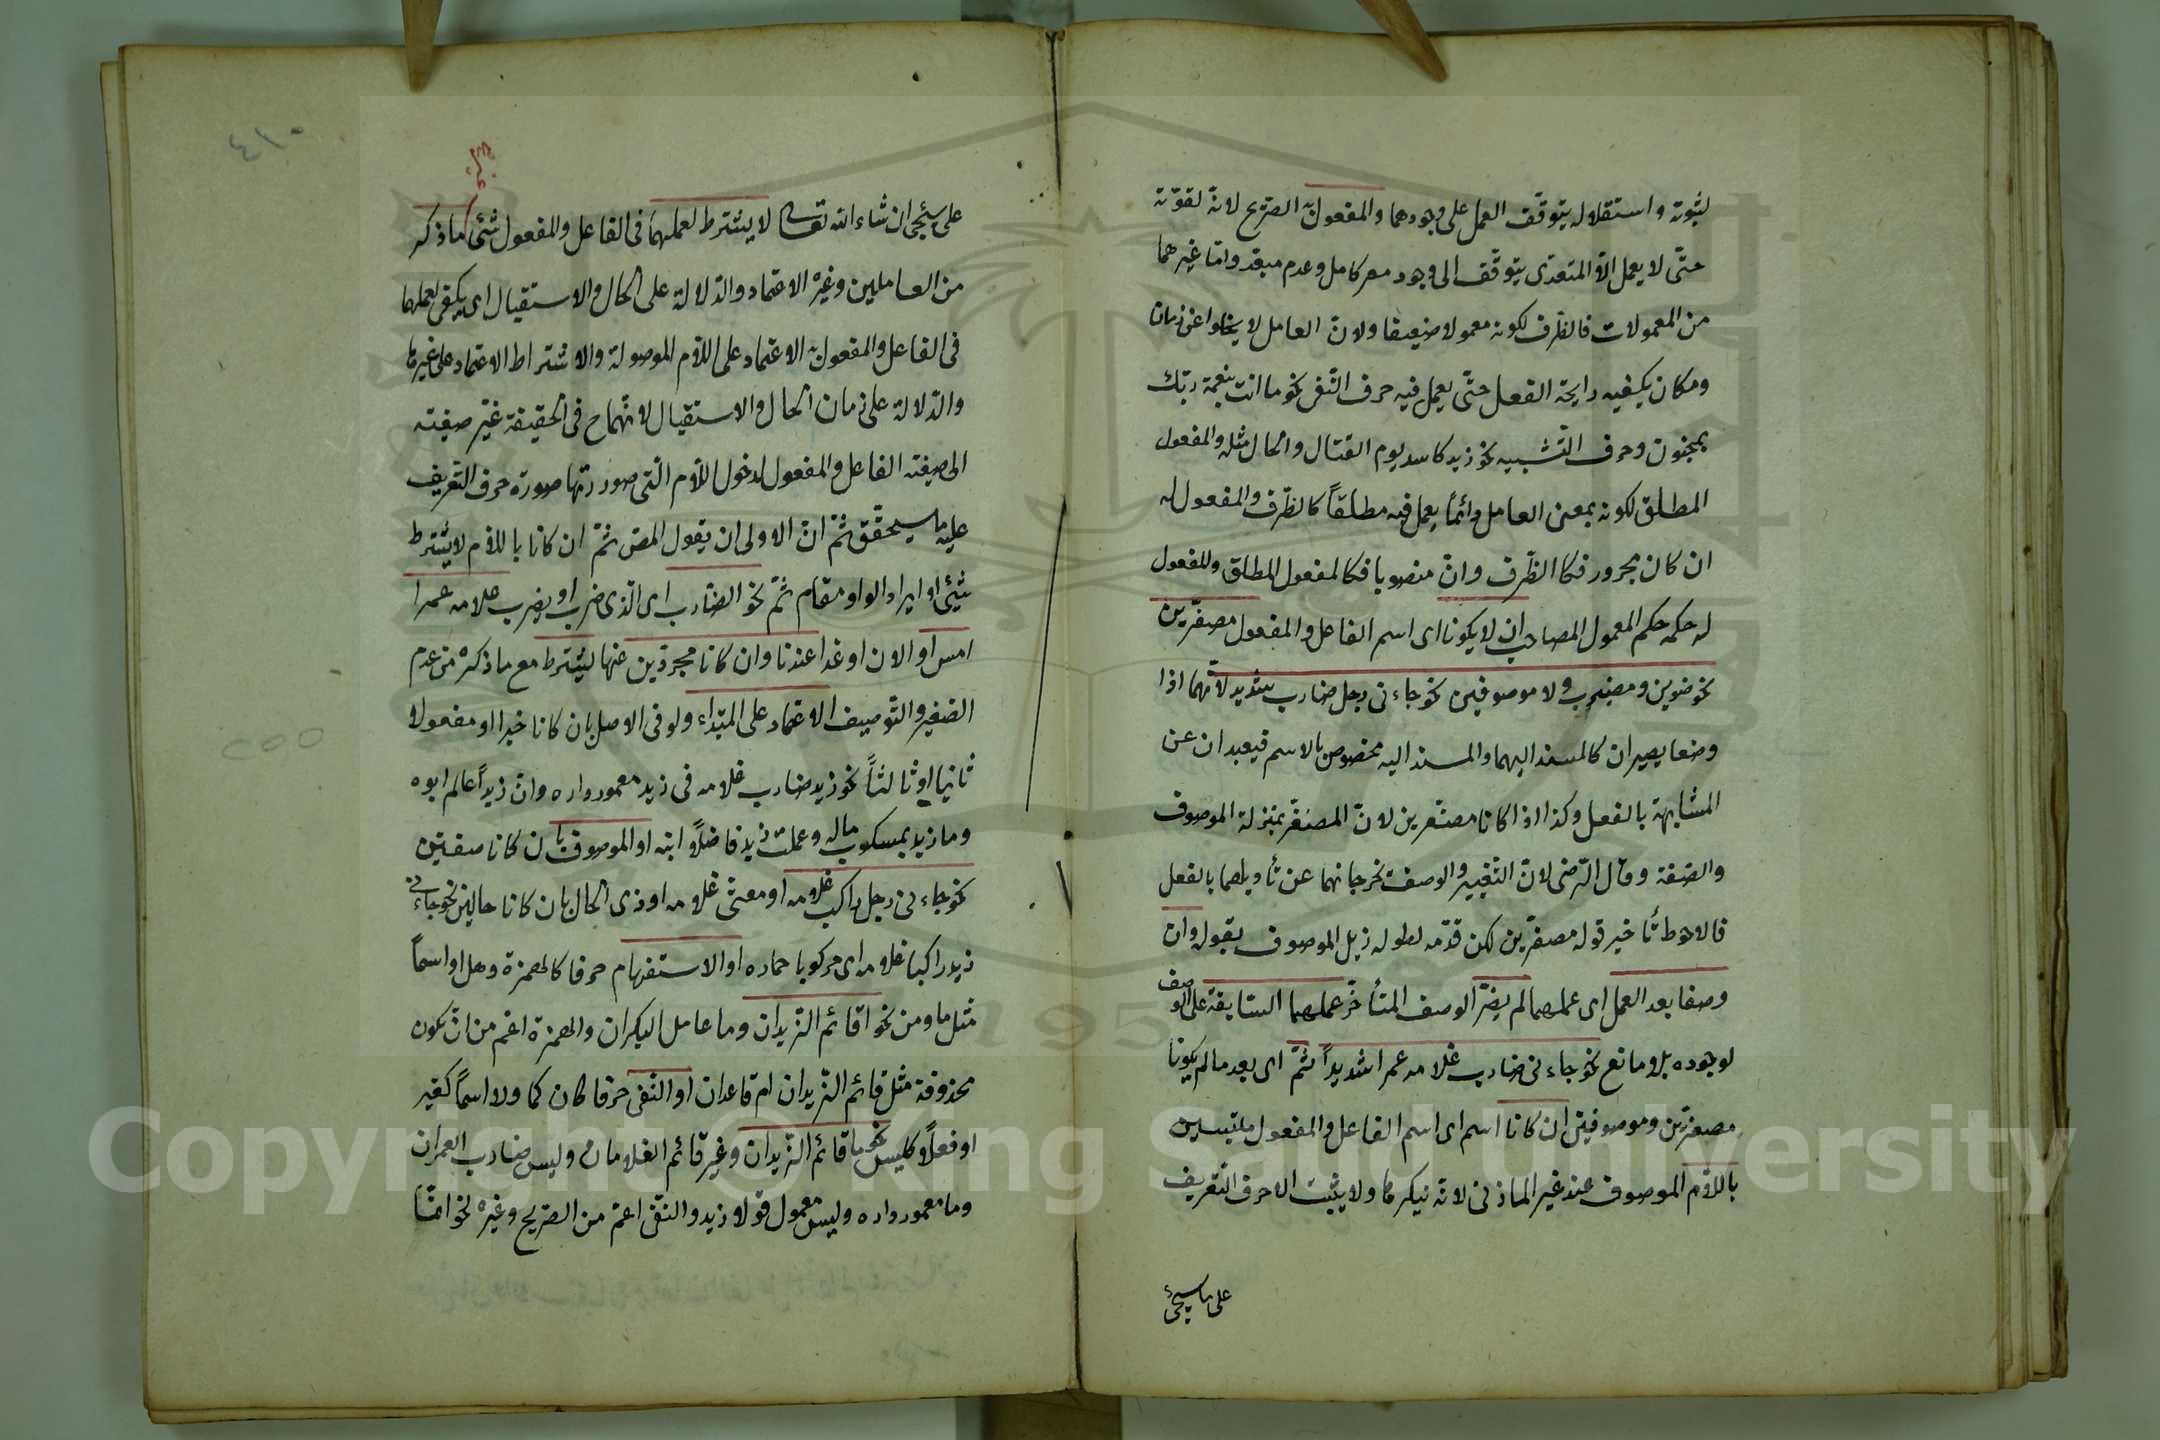 لثبوته واستقلاله يتوقف العمل على وجودهما والمفعول به الصريح لانه لقوته
حتى لا يعمل الا المتعدى يتوقف الى وجود معركامل وعدم مبعد واما غيرهما
من المعمولات فالظرف لكونه معمولا ضعيفا ولان العامل لا يخلوا عن زمان
ومكان يكفيه رايحة الفعل حتى يعمل فيه حرف النفى نحو ما انت بنعمة ربك
بمجنون وحرف التشبيه نحو زيد كاسد يوم القتال والحال مثله والمفعول
المطلق لكونه بمعنى العامل دائماً يعمل فيه مطلقاً كالظرف والمفعول له
ان كان مجرور فكا الظرف وان منصوبا فكالمفعول المطلق وللمفعول
له حكمه حكم المعمول المصاحب ان لا يكونا اى اسم الفاعل والمفعول مصغرين
نحو ضوين ومضيرب ولا موصوفين نحو جاءنى رجل ضارب شديد لانهما اذا
وضعا يصيران كالمسند اليهما والمسند اليه مخصوص بالاسم فيعبدان عن
المشابهة بالفعل وكذا اذا كانا مصغرين لان المصغر بمنزلة الموصوف
والصفة وقال الرضى لان التغيير والوصف تخرجانهما عن تأويلهما بالفعل
فالاحوط تأخير قوله مصغرين لكن قدمه لطوله ذيل الموصوف بقوله وان
وصفا بعد العمل اى عملهما لم يضر الوصف المتأخر عملهما السابقة على الوصف
لوجوده بلا مانع نحو جاءنى ضارب غلامه عمرا شديداً ثم اى بعد ما لم يكونا
مصغرين وموصوفين ان كانا اسم اى اسم الفاعل والمفعول ملتبسين
باللام الموصوف عند غير المازنى لانه نيكرها ولا يثبت الا حرف التعريف
على ما سيجئ
٤١٠
على سيجئ ان شاء الله تعالى لا يشترط لعملهما فى الفاعل والمفعول شئ ما ذكر
من العاملين وغيره الاعتماد والدلالة على الحال والاستقبال اى يكفى لعملهما
فى الفاعل والمفعول به الاعتماد على اللام الموصولة والاشتراط الاعتماد على غيرها
والدلالة على زمان الحال والاستقبال لانهما ح فى الحقيقة غير صيغته
الى صيغته الفاعل والمفعول لدخول اللام التى صورتها صورة حرف التعريف
عليه ما سيحقق ثم ان الاولى ان يقول المص ثم ان كانا باللام لا يشترط
شئ او ايراد الواو مقام ثم نحو الضارب اى الذى ضرب او يضرب غلامه عمرا
امس او الان او غدا عندنا وان كانا مجردين عنها يشترط مع ما ذكره من عدم
الصغير والتوصيف الاعتماد على المبتداء ولو فى الاصل بان كانا خبرا او مفعولا
ثانيا او ثالثاً نحو زيد ضارب غلامه فى زيد معمور داره وان زيداً عالم ابوه
وما زيد بمسكوب ماله وعملت زيد فاضلاً ابنه او الموصوف بان كانا صفتين
نحو جاءنى رجل راكب غلامه او معنى غلامه او ذى الحال بان كانا حالين نحو جاءنى
زيد راكبا غلامه اى مركوبا حماره او الاستفهام حرفا كالهمزة وهل او اسماً
مثل ما ومن نحو اقائم الزيدان وما عامل البكران والهمزة اعم من ان تكون
محذوفة مثل قائم الزيدان ام قاعدان او النفى حرفا كان كما ولا اسماً كغير
او فعلاً كليس نحو ما قائم الزيدان وغير قائم الغلامان وليس ضارب العمران
وما معمور داره وليس معمول قولا زيد والنفى اعم من الصريح وغيره نحو انما
Copyright © King Saud University
1957